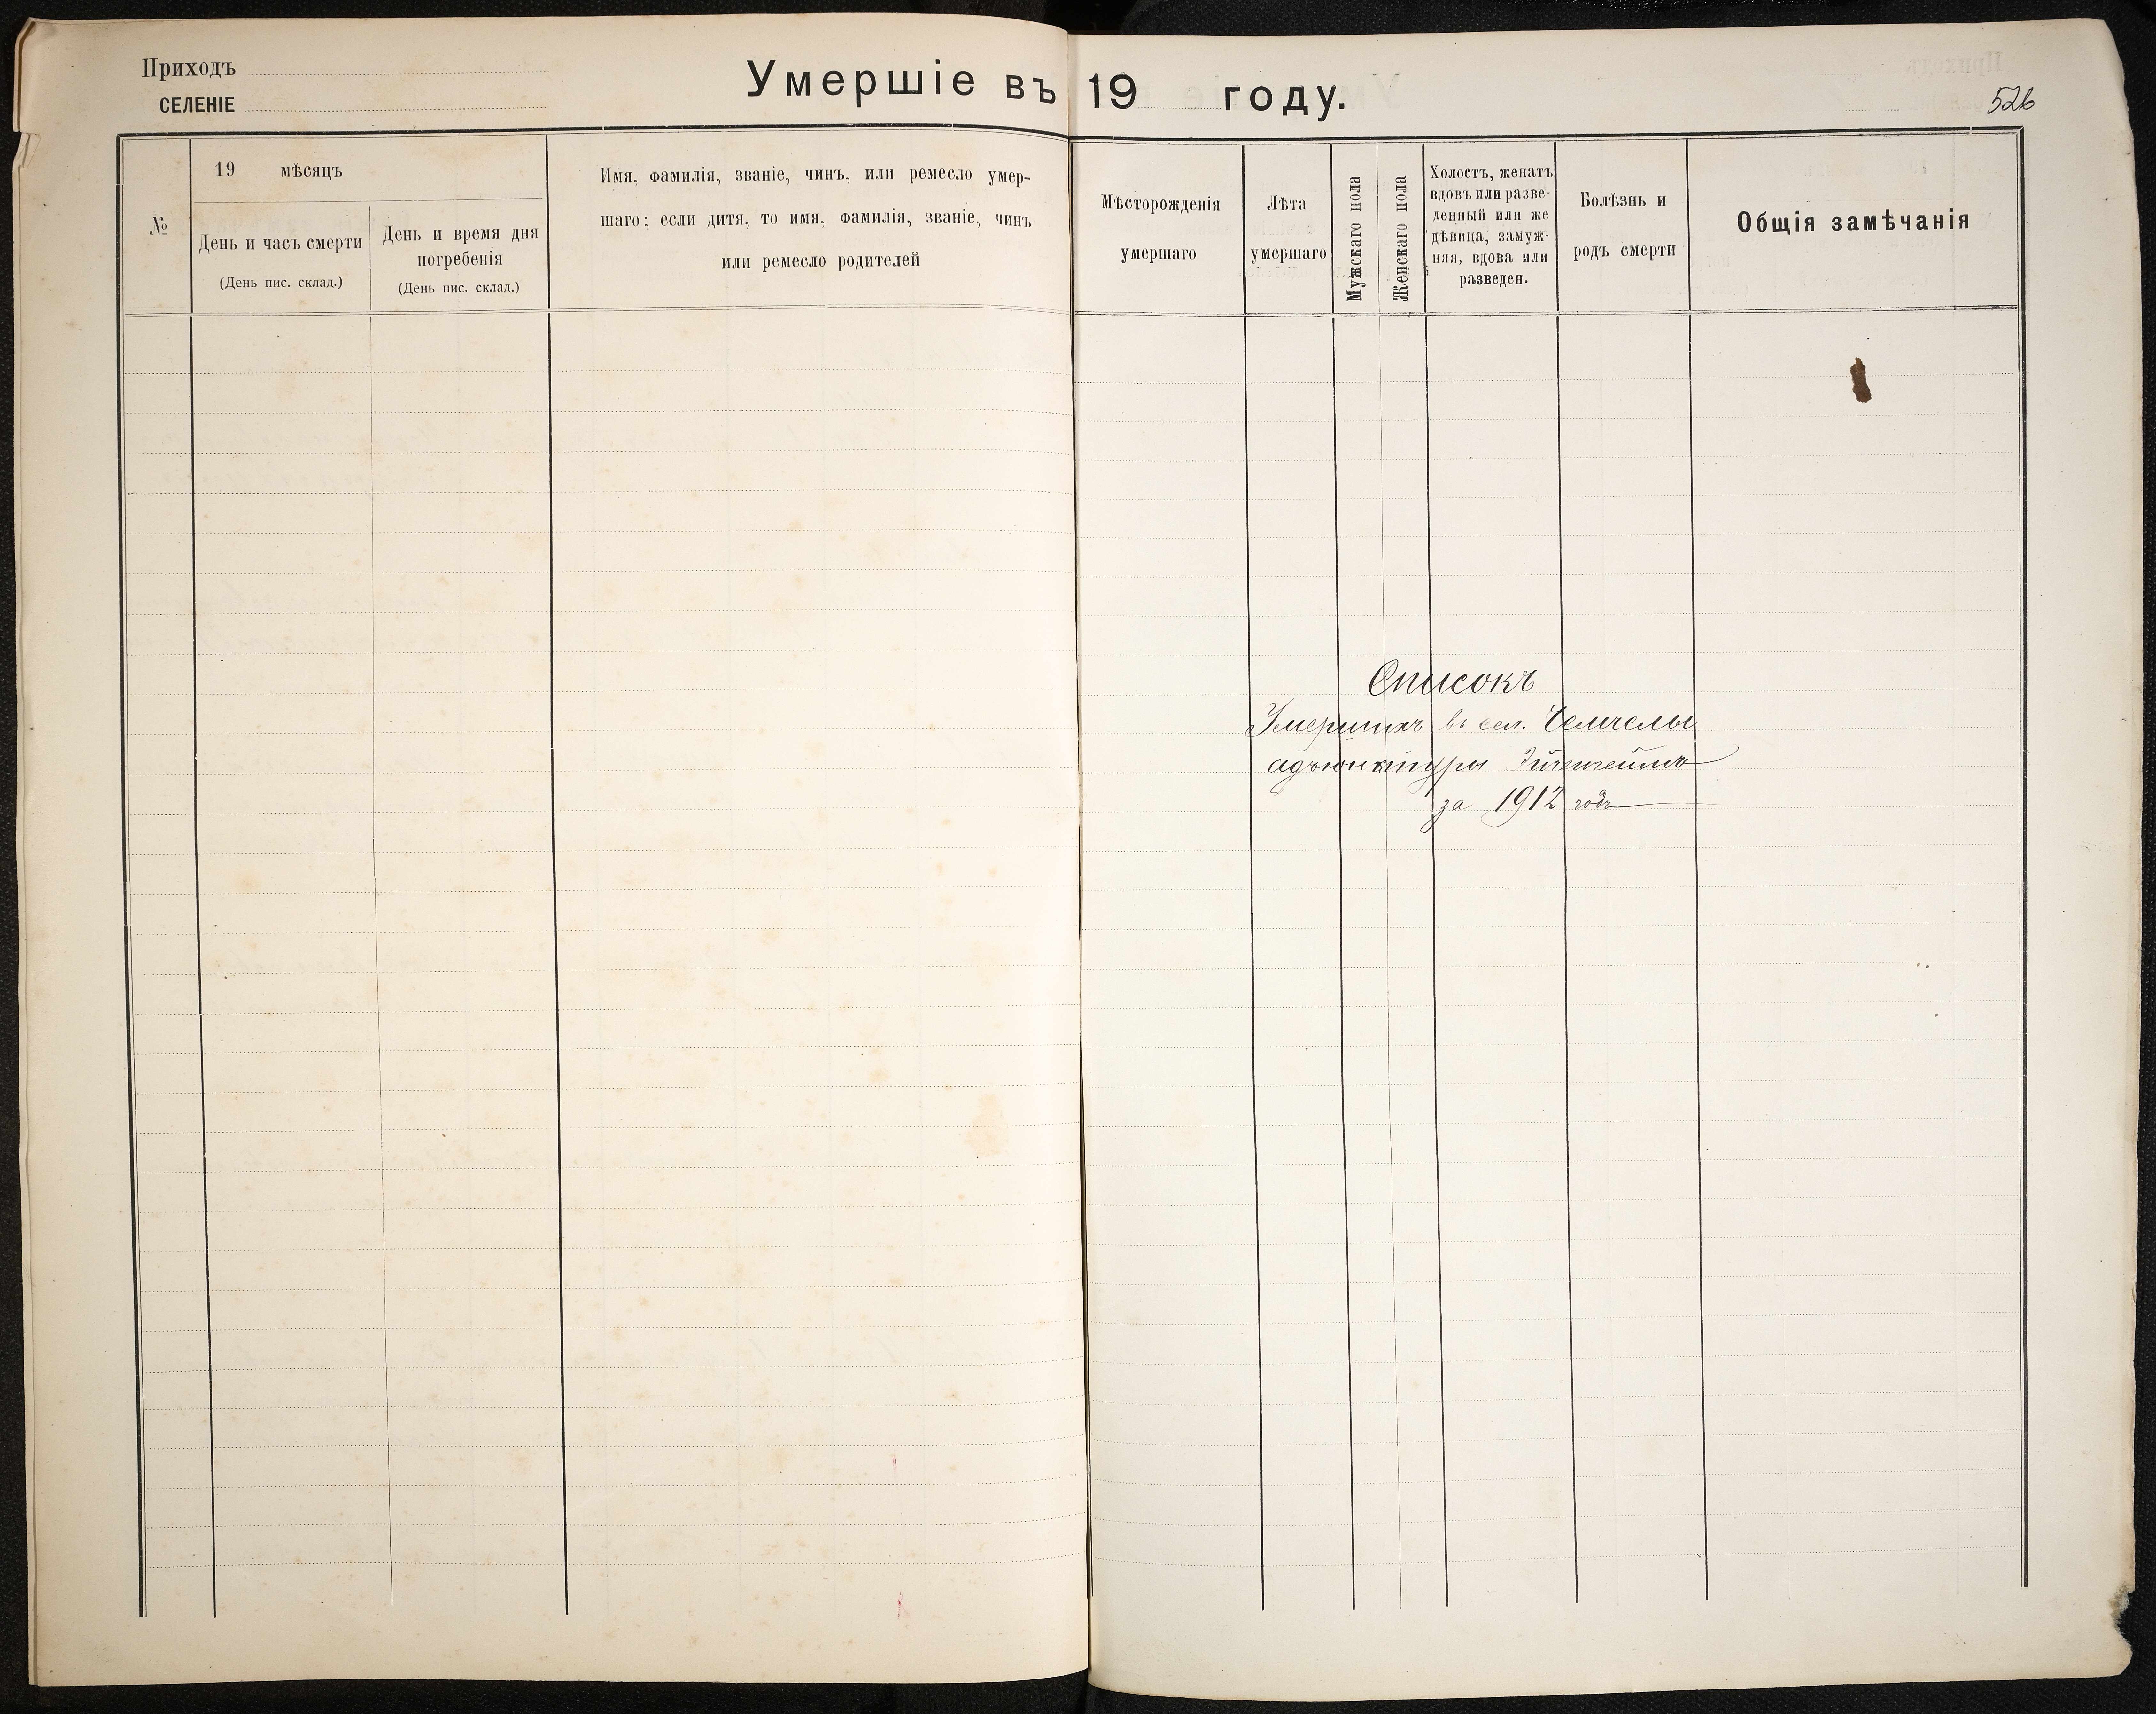 Приходъ
СЕЛЕНІЕ
Умершіе въ 19 году.
526
№
19 мѣсяцъ
День и часъ смерти
(День пис. склад.)
День и время дня
погребенія
(День пис. склад.)
Имя, фамилія, званіе, чинъ, или ремесло умер-
шаго; если дитя, то имя, фамилія, званіе, чинъ
или ремесло родителей
Мѣсторожденія
умершаго
Лѣта
умершаго
Мужскаго пола
Женскаго пола
Холостъ, женатъ
вдовъ или разве-
денный или же
дѣвица, замуж-
няя, вдова или
разведен.
Болѣзнь и
родъ смерти
Общія замѣчанія
Списокъ
Умершихъ въ сел. Чемчелы
адъюнктуры
за 1912 годъ